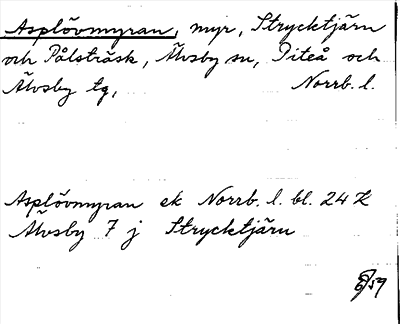 Asplövmyran, myr, Strycktjärn
och Pålsträsk, Älvsby sn, Piteå och
Älvsby tg, Norrb. l.
Asplövmyran ek Norrb. l. bl. 24 K
Älvsby 7 j Strycktjärn
59